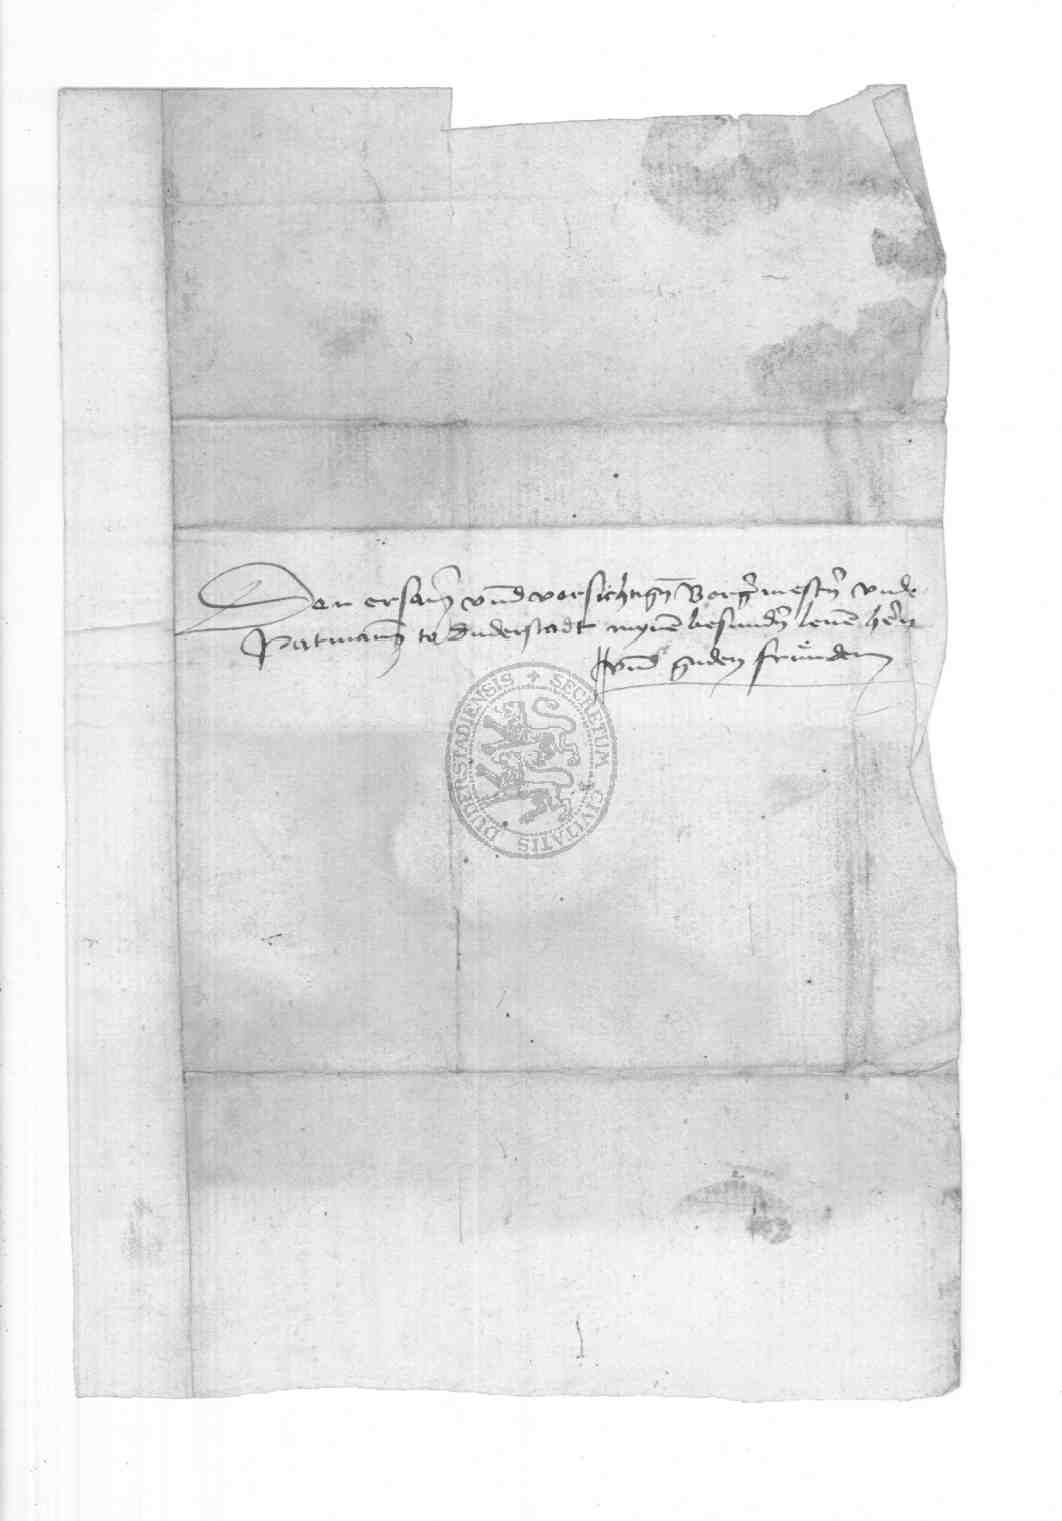 Den ersam̄ vnd vorsichtigen Borgermestern vnde
Ratmann to Duderstadt mynen besundern leuen hern
vnd guden frunden
SECRETUM CIVITATIS DUDERSTADIENSIS